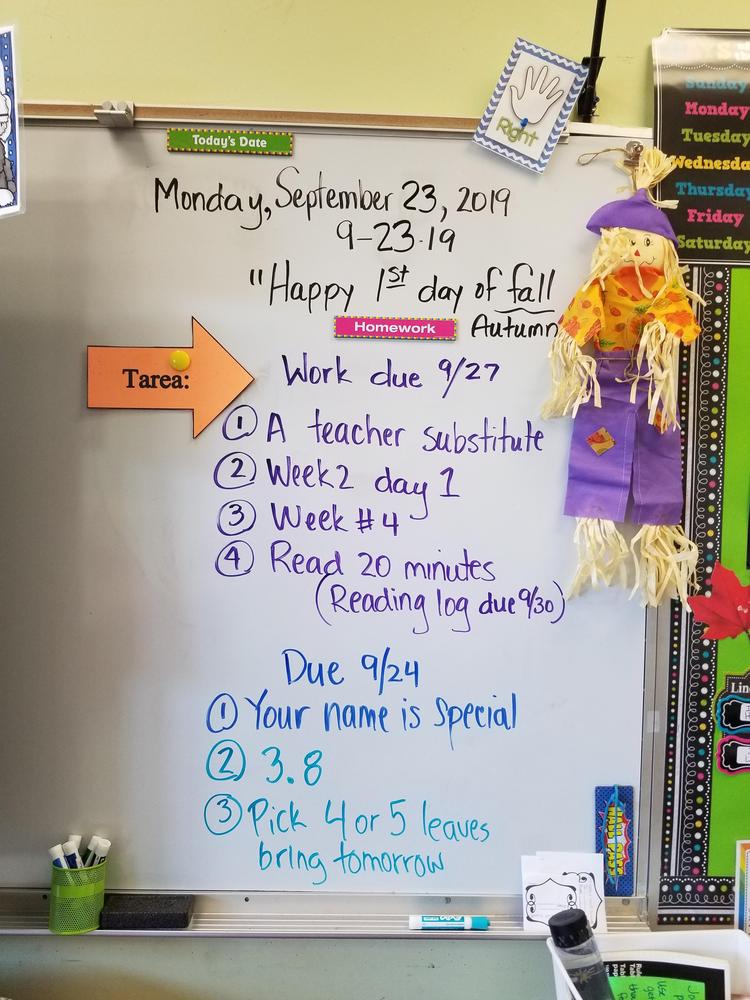 Right
Today's Date
Monday, September 23, 2019
9-23-19
"Happy 1st day of fall
Autumn
Homework
Tarea:
Work due 9/27
① A teacher substitute
② Week 2 day 1
③ Week #4
④ Read 20 minutes
(Reading log due 9/30)
Due 9/24
① Your name is special
② 3.8
③ Pick 4 or 5 leaves
bring tomorrow
Sunday
Monday
Tuesday
Wednesda
Thursday
Friday
Saturday
Lin
HALL PASS